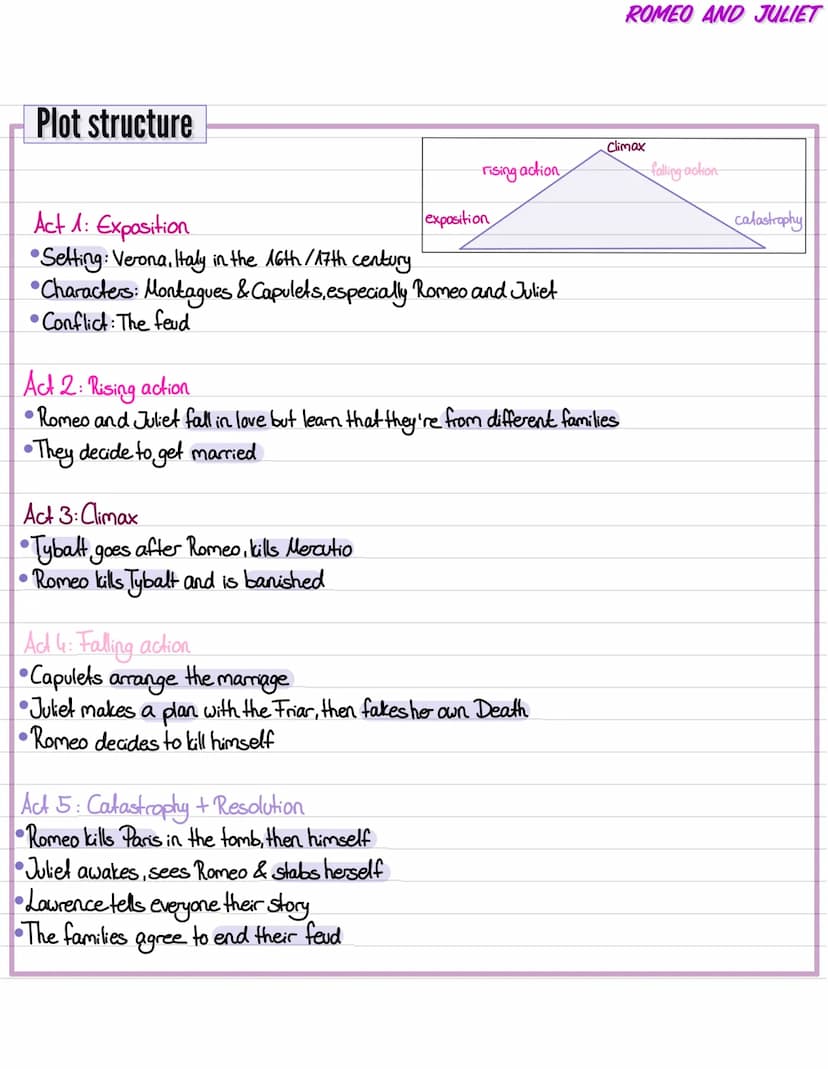 ROMEO AND JULIET
Plot structure
Climax
rising action
falling action
exposition
catastrophy
Act 1: Exposition
• Setting: Verona, Italy in the 16th/17th century
• Characters: Montagues & Capulets, especially Romeo and Juliet
• Conflict: The feud
Act 2: Rising action
• Romeo and Juliet fall in love but learn that they're from different families
• They decide to get married
Act 3: Climax
• Tybalt goes after Romeo, kills Mercutio
• Romeo kills Tybalt and is banished
Act 4: Falling action
• Capulets arrange the marriage
• Juliet makes a plan with the Friar, then fakes her own Death
• Romeo decides to kill himself
Act 5: Catastrophy + Resolution
• Romeo kills Paris in the tomb, then himself
• Juliet awakes, sees Romeo & stabs herself
• Lawrence tells everyone their story
• The families agree to end their feud